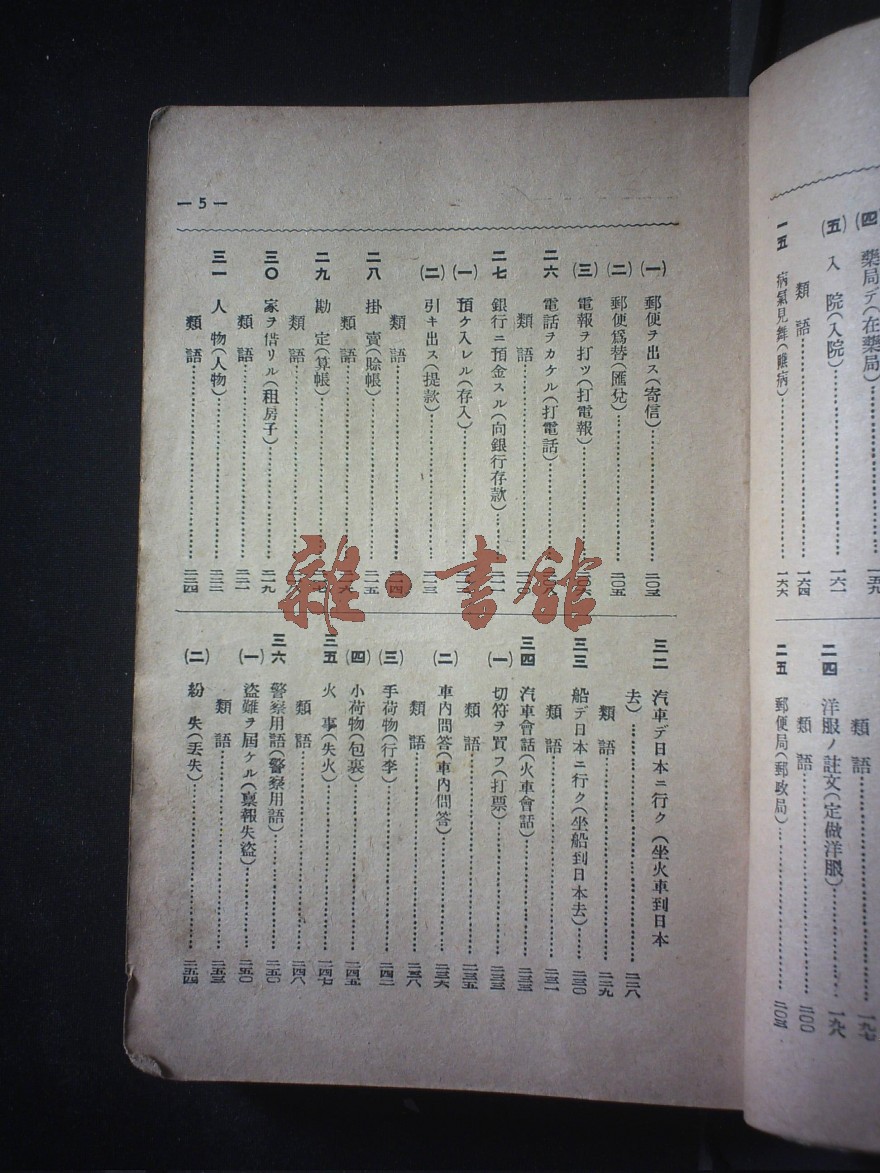 (四) 藥局デ(在藥局)…一五九
(五) 入 院(入院)…一六一
類 語…一六四
一五 病氣見舞(瞧病)…一六六
類 語…一九七
二四 洋服ノ註文(定做洋服)…一九八
類 語…二〇〇
二五 郵便局(郵政局)…二〇三
— 5 —
(一) 郵便ヲ出ス(寄信)…二〇三
(二) 郵便爲替(匯兌)…二〇五
(三) 電報ヲ打ツ(打電報)…二〇六
二六 電話ヲカケル(打電話)…二〇八
類 語…二一〇
二七 銀行ニ預金スル(向銀行存款)…二一一
(一) 預ケ入レル(存入)
(二) 引キ出ス(提款)…二一三
類 語…二一四
二八 掛 賣(賒帳)…二一五
類 語
二九 勘 定(算帳)
類 語
三〇 家ヲ借リル(租房子)…二一九
類 語…二二一
三一 人 物(人物)…二二三
類 語…二二四
三二 汽車デ日本ニ行ク(坐火車到日本
去)…二二八
類 語…二二九
三三 船デ日本ニ行ク(坐船到日本去)…二三〇
類 語…二三一
三四 汽車會話(火車會話)…二三三
(一) 切符ヲ買フ(打票)…二三三
類 語…二三五
(二) 車内問答(車内問答)…二三六
類 語…二三八
(三) 手荷物(行李)…二四二
(四) 小荷物(包裹)…二四五
三五 火 事(失火)…二四七
類 語…二四八
三六 警察用語(警察用語)…二五〇
(一) 盜難ヲ屆ケル(禀報失盜)…二五〇
類 語…二五三
(二) 紛 失(丟失)…二五四
雜·書館